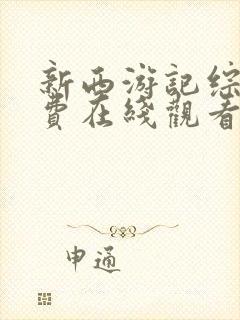 新西游记综
費在綫觀看
申通